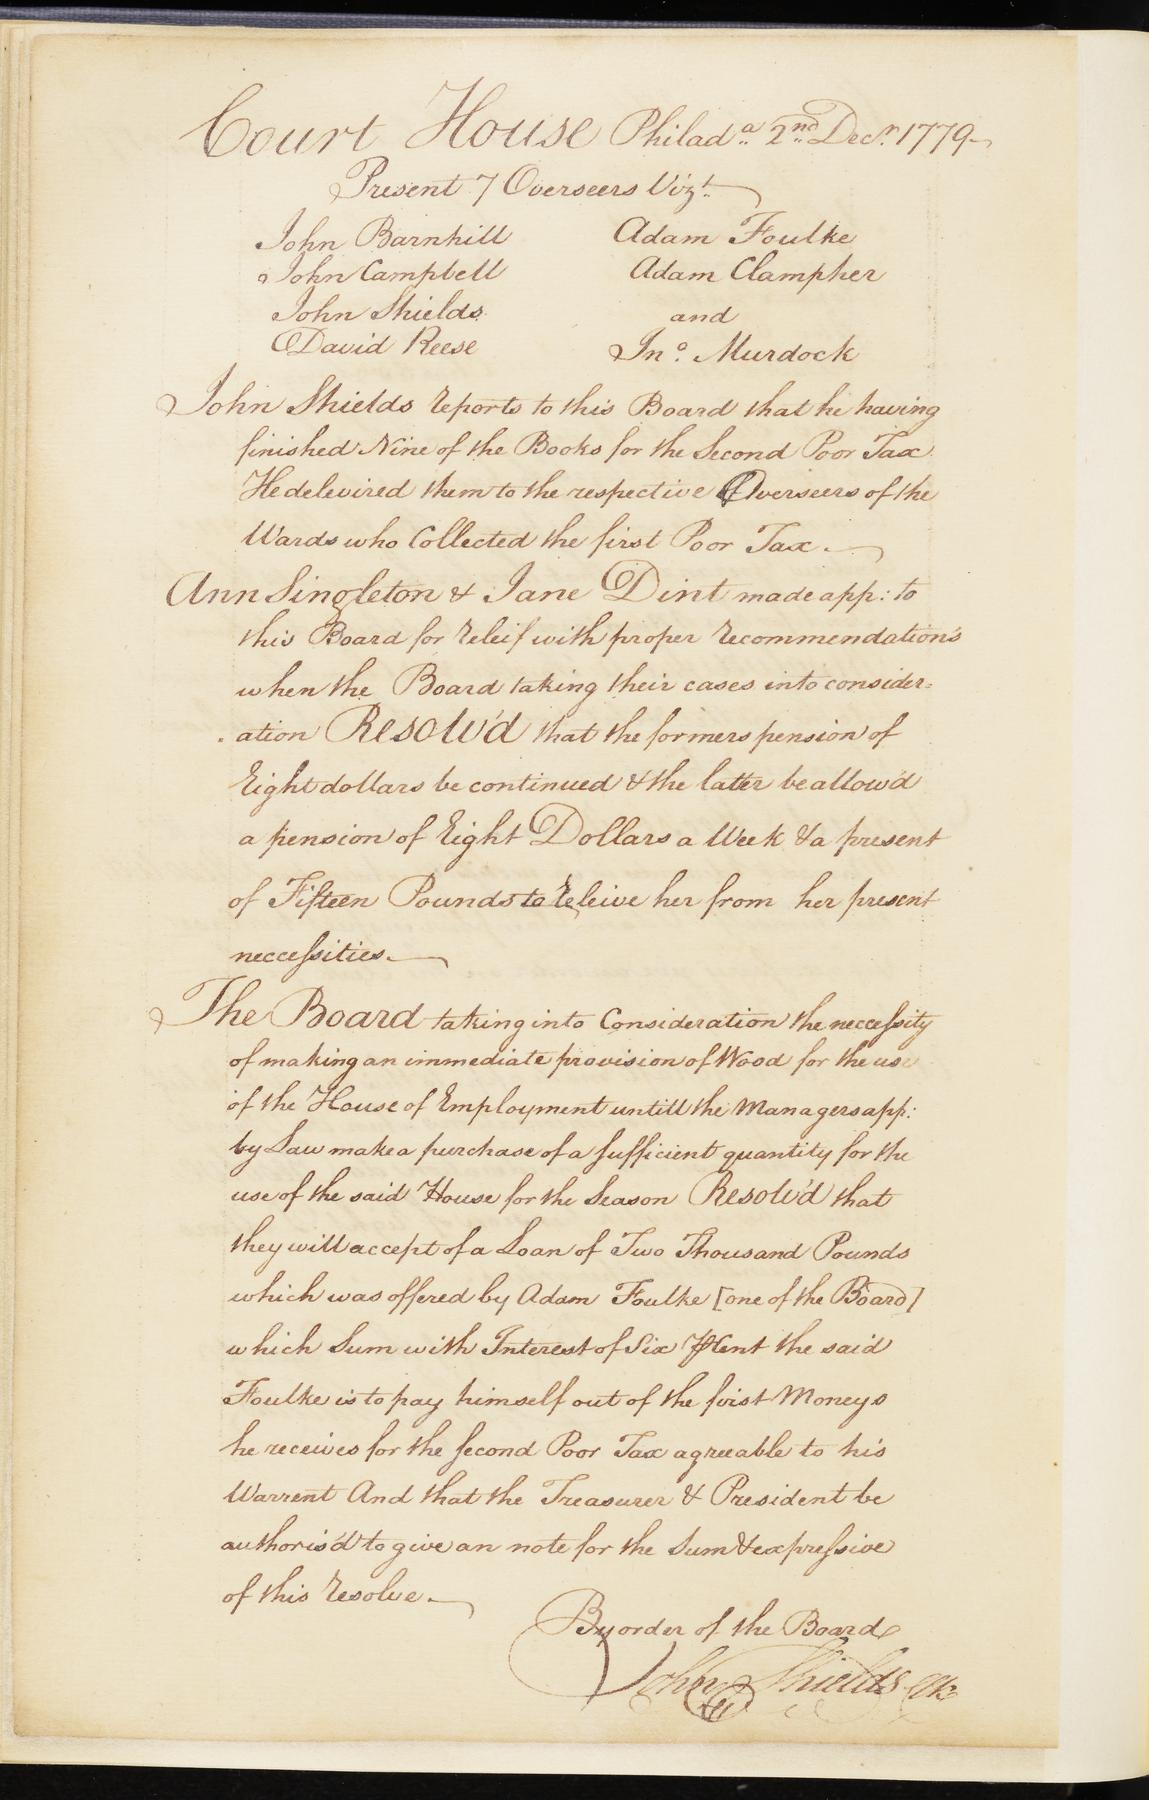 Court House Philada. 2nd. Decr. 1779
Present 7 Overseers Vizt.
John Barnhill Adam Foulke
John Campbell Adam Clampher
John Shields and
David Reese Jno. Murdock
John Shields reports to this Board that he having
finished Nine of the Books for the Second Poor Tax
He delevired them to the respective Overseers of the
Wards who Collected the first Poor Tax.
Ann Singleton & Jane Dint made app: to
this Board for releif with proper recommendations
when the Board taking their cases into consider=
ation Resolv'd that the formers pension of
Eight dollars be continued & the latter be allow'd
a pension of Eight Dollars a Week & a present
of Fifteen Pounds to releive her from her present
neccessities.
The Board taking into Consideration the neccessity
of making an immediate provision of Wood for the use
of the House of Employment untill the Managers app:
by Law make a purchase of a sufficient quantity for the
use of the said House for the Season Resolv'd that
they will accept of a Loan of Two Thousand Pounds
which was offered by Adam Foulke [one of the Board]
which Sum with Interest of Six ⅌ Cent the said
Foulke is to pay himself out of the first Moneys
he receives for the second Poor Tax agreeable to his
Warrent And that the Treasurer & President be
authoris'd to give an note for the Sum & expressive
of this resolve.
By order of the Board
John Shields Clk